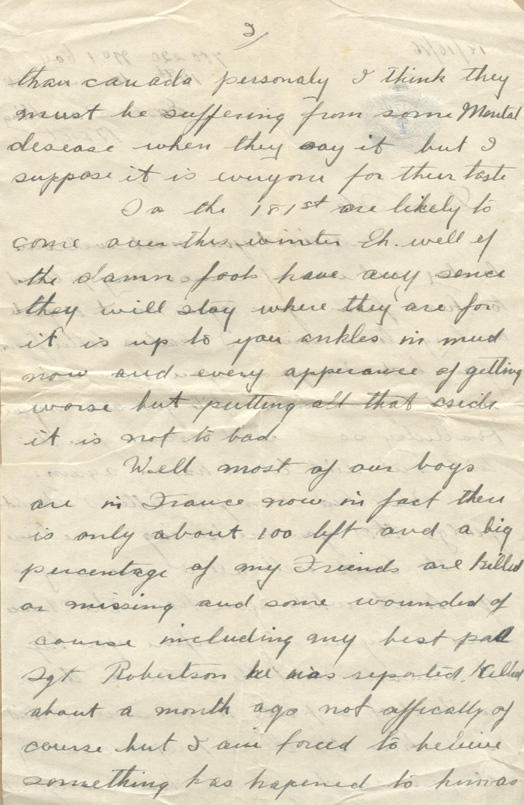 2/
than canada personaly I think they
must be suffering from some Mental
desease when they say it but I
suppose it is everyone for their taste
So the 181st are likely to
come over this winter Eh. well if
the damn fools have any sence
they will stay where they are for
it is up to you ankles in mud
now and every apperance of getting
worse but putting all that aside
it is not to bad
Well most of our boys
are in France now in fact there
is only about 100 left and a big
percentage of my Friends are killed
or missing and some wounded of
course including my best pal
Sgt Robertson he was reported killed
about a month ago not offically of
course but I am forced to beleive
something has hapened to him as